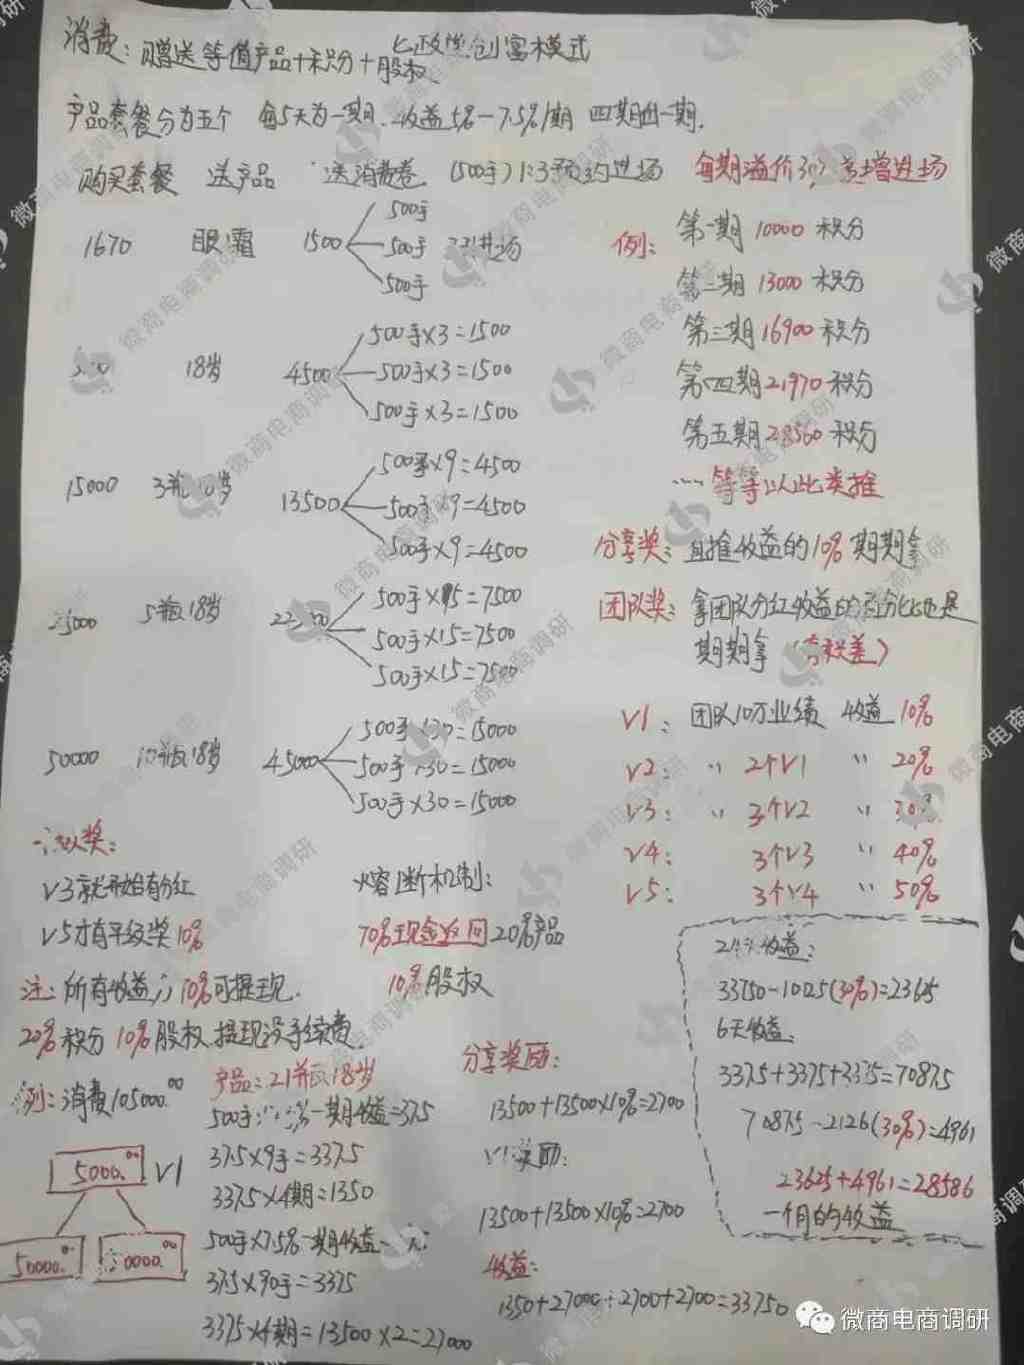 消费：赠送等值产品+积分+股权
创富模式
产品套餐分为五个 每5天为一期、收益5%-7.5%/期 四期出一期.
购买套餐 送产品 送消费卷 (500手) 1:3预约进场 每期溢价30%递增进场
1670 眼霜 1500
500手
500手
500手
18岁 4500
500手×3=1500
500手×3=1500
500手×3=1500
15000 3瓶18岁 13500
500手×9=4500
500手×9=4500
500手×9=4500
25000 5瓶18岁
500手×15=7500
500手×15=7500
500手×15=7500
50000 10瓶18岁 45000
500手×30=15000
500手×30=15000
500手×30=15000
例：
第一期 10000 积分
第二期 13000 积分
第三期 16900 积分
第四期 21970 积分
第五期 28560 积分
等等以此类推
分享奖：直推收益的10% 期期拿
团队奖：拿团队分红收益的百分比也是
期期拿 (有级差)
V1：团队10万业绩 收益 10%
V2： 〃 2个V1 〃 20%
V3： 〃 3个V2 〃 30%
V4： 3个V3 〃 40%
V5： 3个V4 〃 50%
V3就开始有分红
V5才有平级奖 10%
熔断机制：
70%现金返回 20%产品
10%股权
注：所有收益 可提现.
20%积分 10%股权 提现没手续费.
例：消费105000.00
5000.00 V1
50000.00
产品：21瓶18岁
第一期收益=37.5
37.5×9手=337.5
337.5×4期=1350
500手×7.5% 一期收益
37.5×90手=3375
3375×4期=13500×2=27000
分享奖励：
13500+13500×10%=2700
V1奖励：
13500+13500×10%=2700
收益：
1350+27000+2700+2700=33750
24天收益：
33750-10125(30%)=23625
6天收益：
3375+3375+3375=7087.5
7087.5-2126(30%)=4961
23625+4961=28586
一个月的收益
微商电商调研